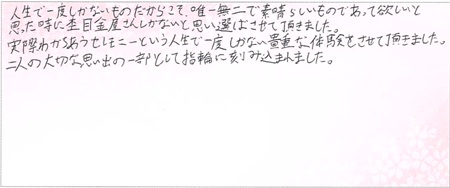 人生で一度しかないものだからこそ、唯一無二で素晴らしいものであって欲しいと
思った時に杢目金屋さんしかないと思い選ばさせて頂きました。
実際わかちあうセレモニーという人生で一度しかない貴重な体験をさせて頂きました。
二人の大切な思い出の一部として指輪に刻み込まれました。